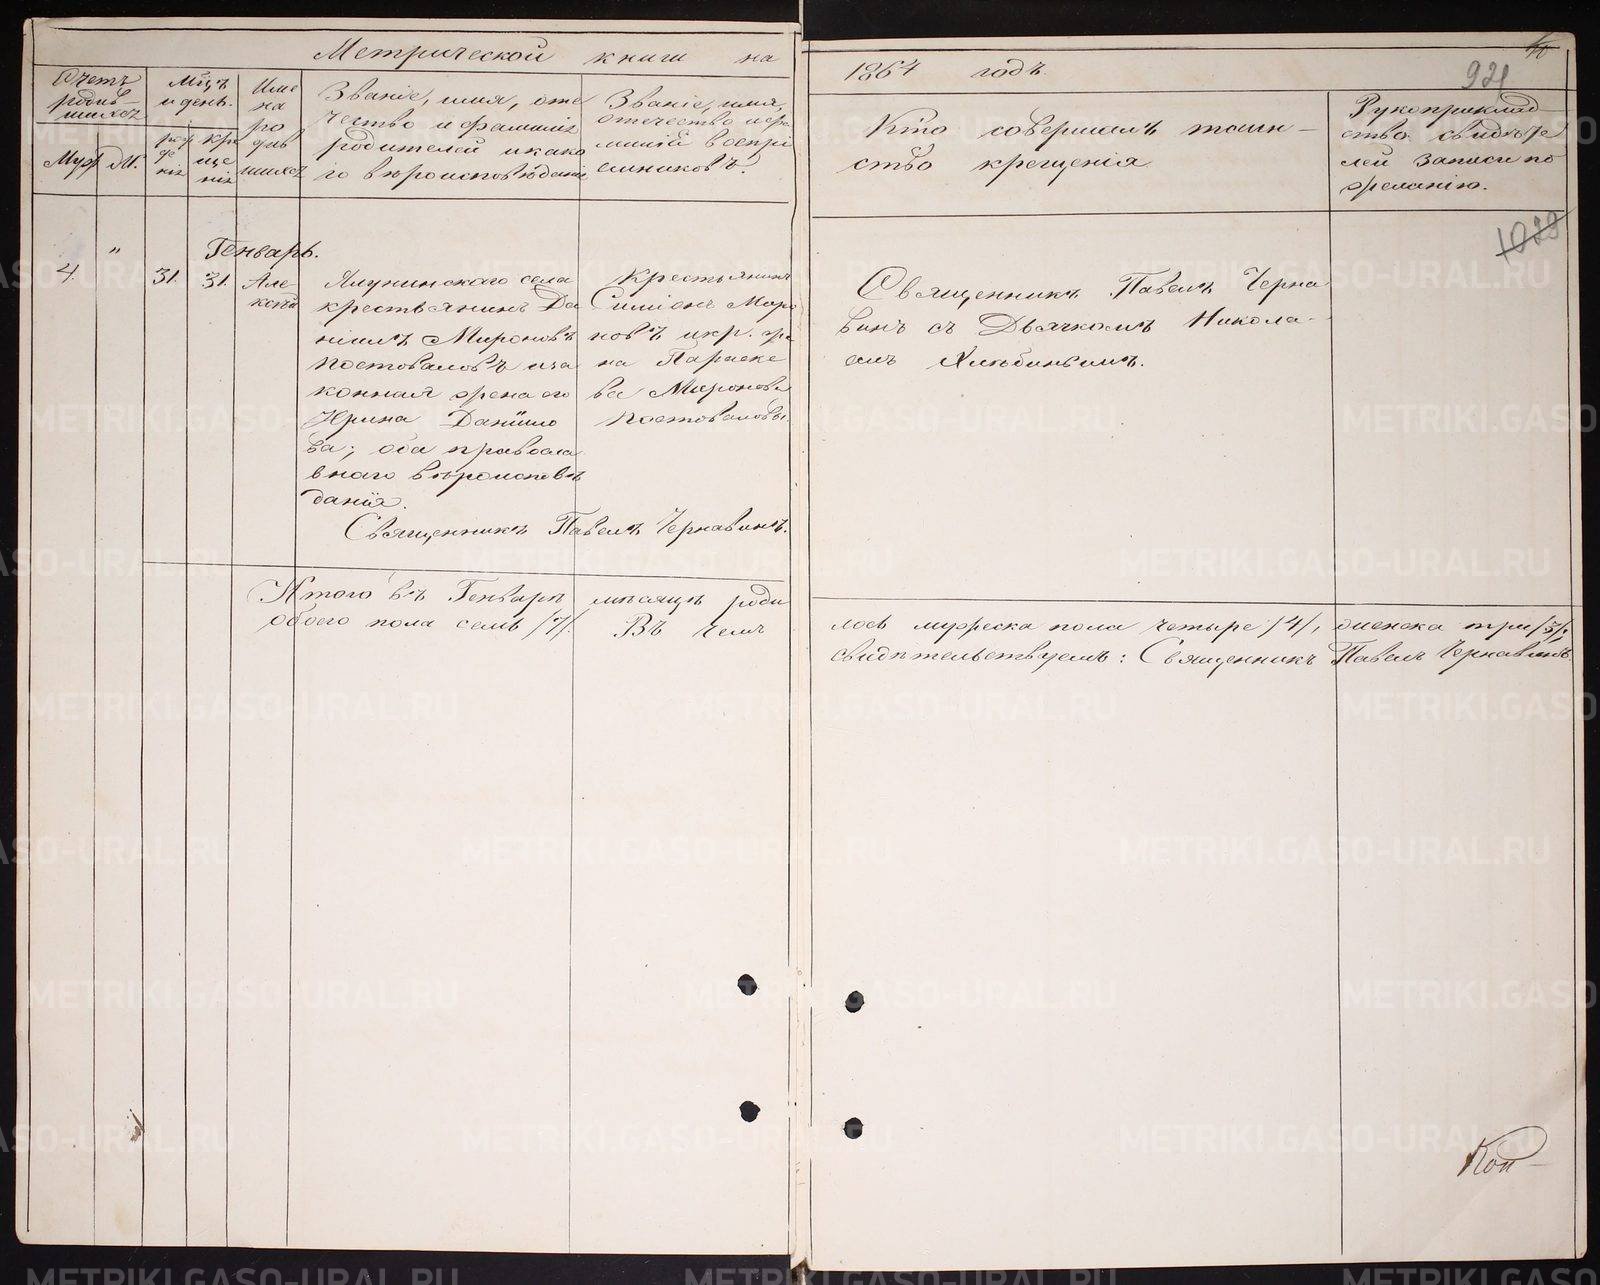 Метрической книги на
1864 годъ
921
Счетъ
родив-
шихся
Муж. Ж.
Мѣцъ
и день.
рож
де
нія
кре
ще
нія
Име
на
ро
див
шихся
Званіе, имя, оте
чество и фамилія
родителей и како
го вѣроисповѣданія
Званіе, имя,
отчество и фа
милія воспрі
емниковъ.
Кто совершилъ таин-
ство крещенія
Рукоприклад-
ство свидѣте
лей записи по
желанію.
1028
Генварь.
4. " 31. 31.
Але-
ксѣй
села
крестьянинъ Да
ніилъ Мироновъ
Постоваловъ и за
конная жена его
Ирина Даніило
ва; оба правосла
внаго вѣроисповѣ
данія.
Крестьянинъ
Симеонъ Миро
новъ и кр. же
на Параске
ва Миронова
Постоваловы.
Священникъ Павелъ Черна
винъ съ Дьячкомъ Никола-
емъ
Священникъ Павелъ Чернавинъ.
Итого въ Генварѣ мѣсяцѣ роди
обоего пола семь /7/. Въ чемъ
лось мужеска пола четыре /4/, женска три /3/;
свидѣтельствуемъ: Священникъ Павелъ Чернавинъ
Коп-
METRIKI.GASO-URAL.RU